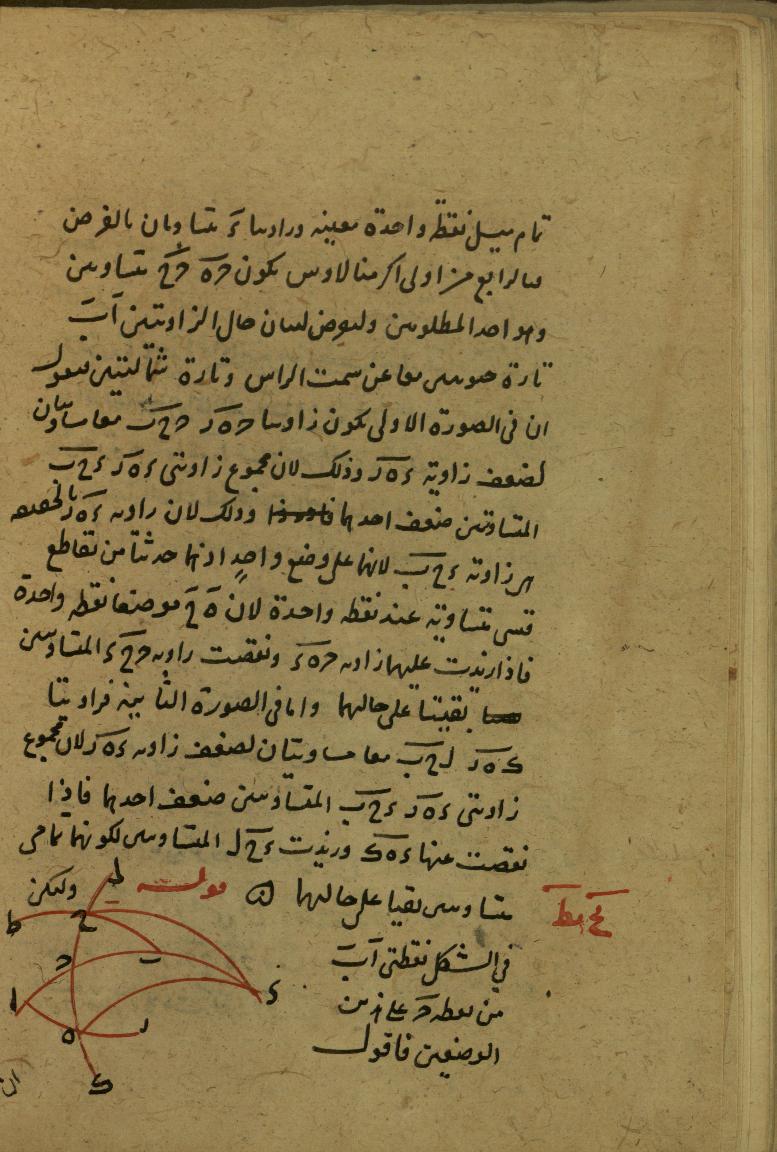 تمام ميل نقطة واحدة معينه وزاويتا ءَ متساويتان بالفرض
فبالرابع من اولى اكرمنالاوس يكون حه حح متساويين
وهو احد المطلوبين ولنعرض لبيان حال الزاويتين اَب
تارة جنوبيين معا عن سمت الراس وتارة شماليتين فنقول
ان فى الصورة الاولى يكون زاويتا حهر ححب معا مساويتان
لضعف زاوية ءهر وذلك لان مجموع زاويتى ءهر ءحب
المتساويتين ضعف احدهما وذلك لان زاويه ءهر بالحقيقه
هى زاوية ءحب لانهما على وضع واحدٍ اذ هما حدثتا من تقاطع
قسى متساوية عند نقطه واحدة لان هَ حَ موضعا نقطه واحدة
فاذا زيدت عليهما زاويه حهء ونقصت زاويه ححء المتساويتين
بقيتا على حالهما واما فى الصورة الثانية فزاويتا
كهر لحب معا مساويتان لضعف زاويه ءهر لان مجموع
زاويتى ءهر ءحب المتساويتين ضعف احدهما فاذا
نقصت عنها ءهك وزيدت ءحل المتساويين لكونهما تمامى
متساويين بقيا على حالهما ولتكن
فى الشكل نقطتى اَب
من نقطه حَ على هذين
الوضعين فاقول
ل
ط
ح
ح
ب
ا
ء
ه
ر
ك